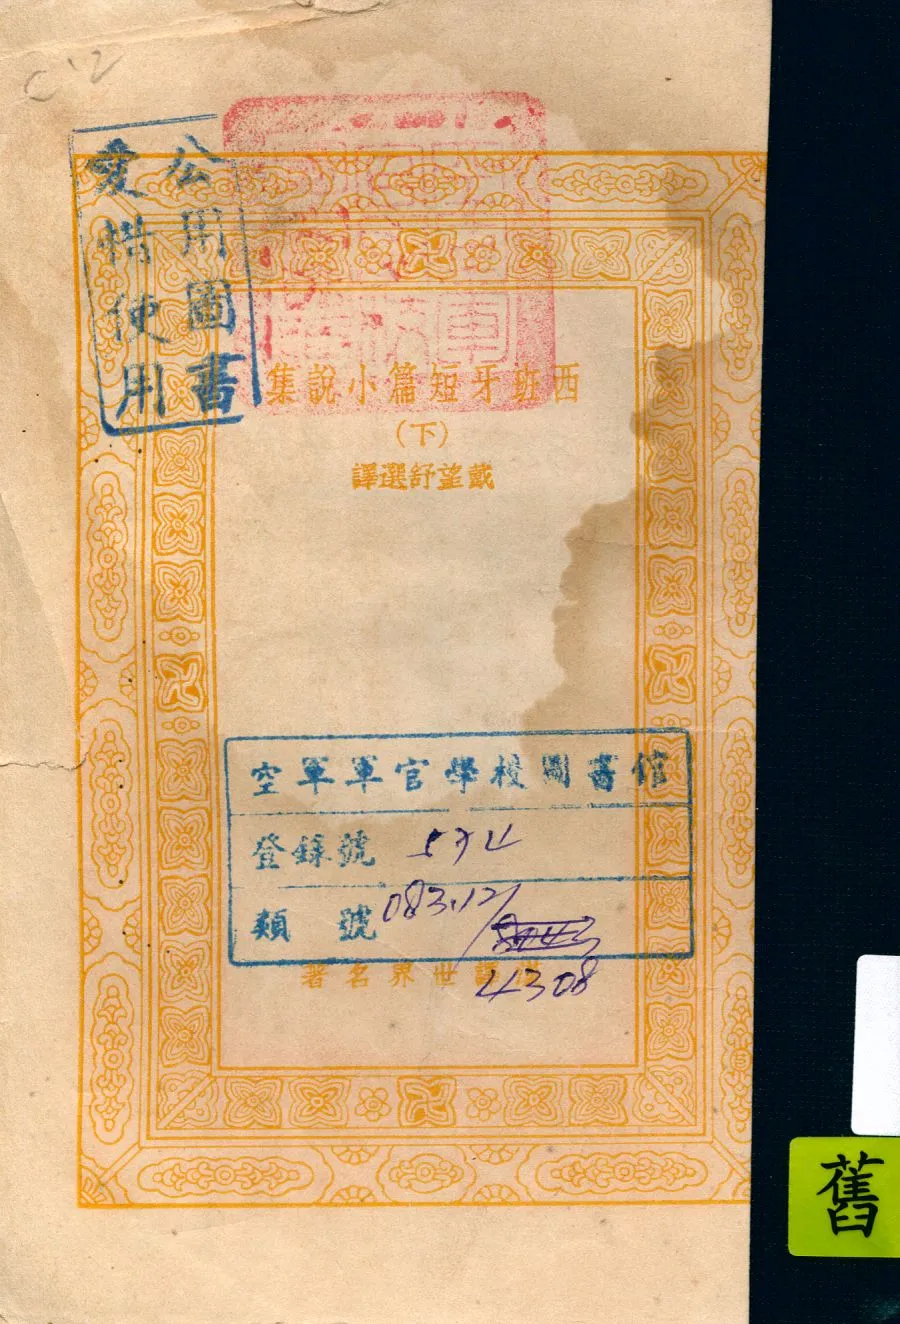 公用圖書
愛惜使用
西班牙短篇小說集
(下)
戴望舒選譯
空軍軍官學校圖書館
登錄號
類號 083.12/
4308
世界名著
舊